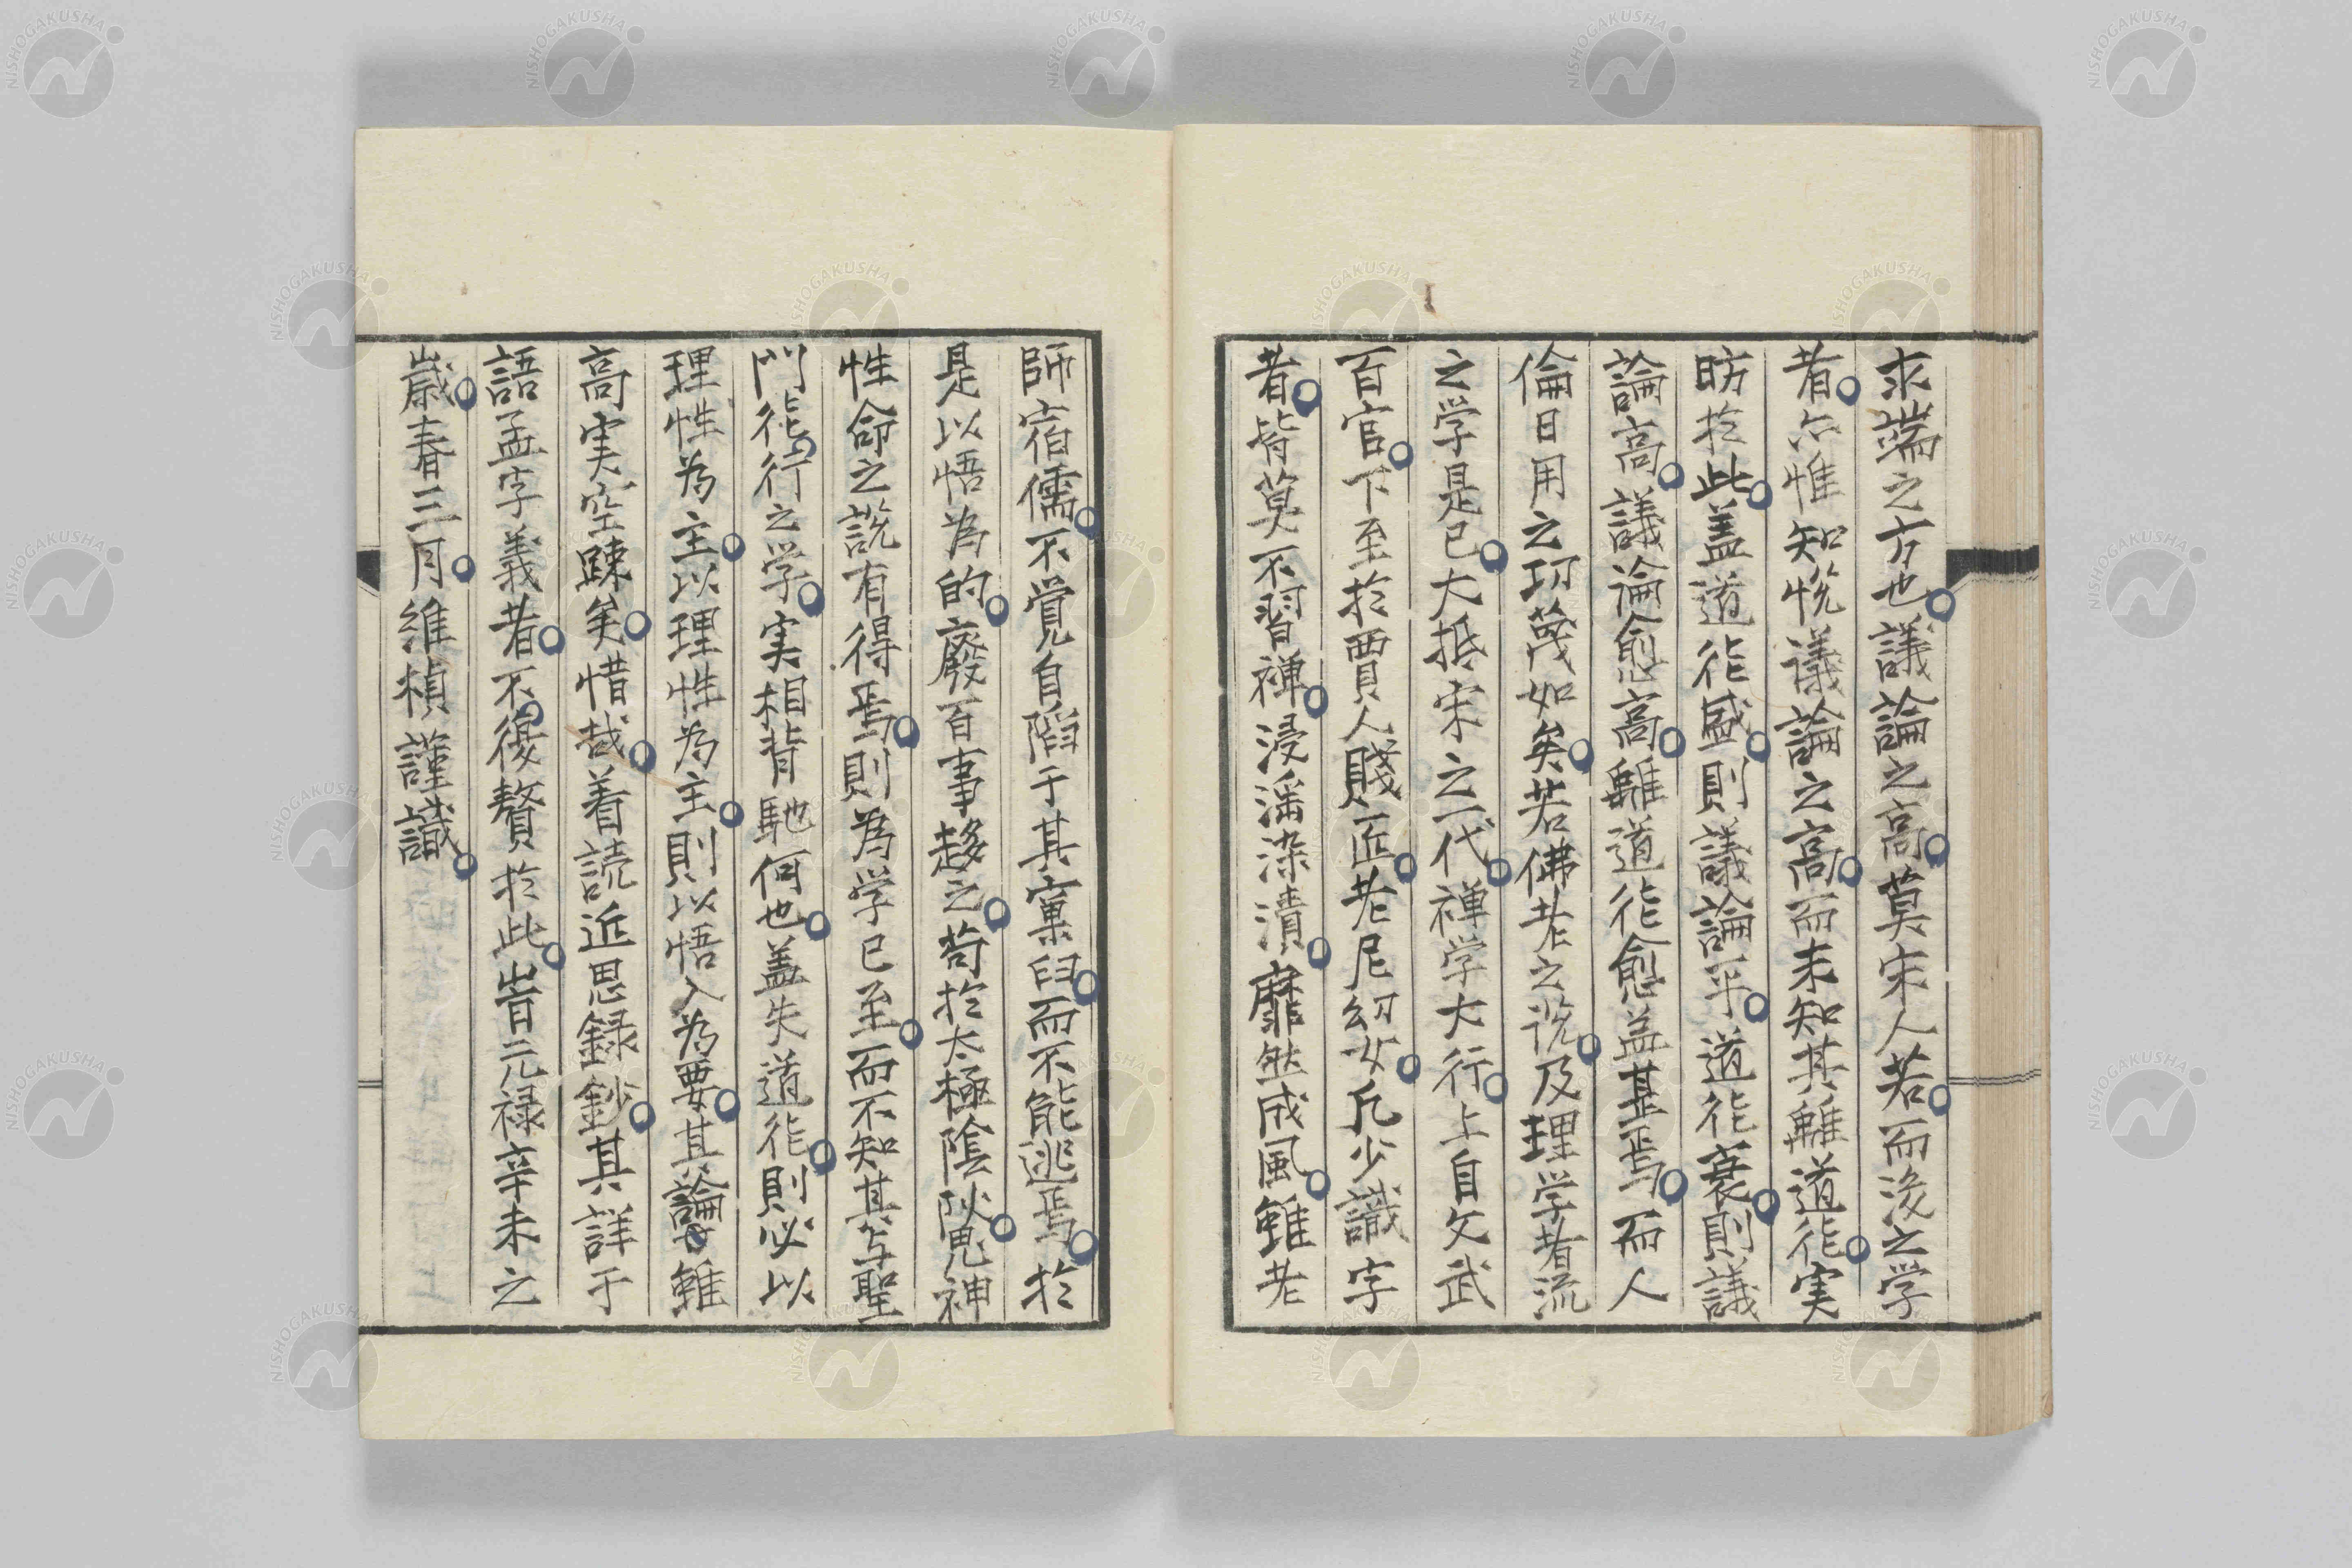 求端之方也議論之高莫宋人若而後之学
者亦惟知悦議論之高而未知其離道徳実
昉於此盖道徳盛則議論平道徳衰則議
論高議論愈高離道徳愈益甚焉而人
倫日用之功蔑如矣若佛老之説及理学者流
之学是已大抵宋之一代禅学大行上自文武
百官下至於賈人賤匠老尼幼女凡少識字
者皆莫不習禅浸滛染漬靡然成風雖老
師宿儒不覚自陷于其窠臼而不能逃焉於
是以悟為的廢百事趍之苟於太極陰陽鬼神
性命之説有得焉則為学已至而不知其与聖
門徳行之学実相背馳何也盖失道徳則必以
理性為主以理性為主則以悟入為要其論雖
高実空踈矣惜哉着読近思録鈔其詳于
語孟字義者不復贅於此旹元禄辛未之
歳春三月維楨謹識
NISHOGAKUSHA